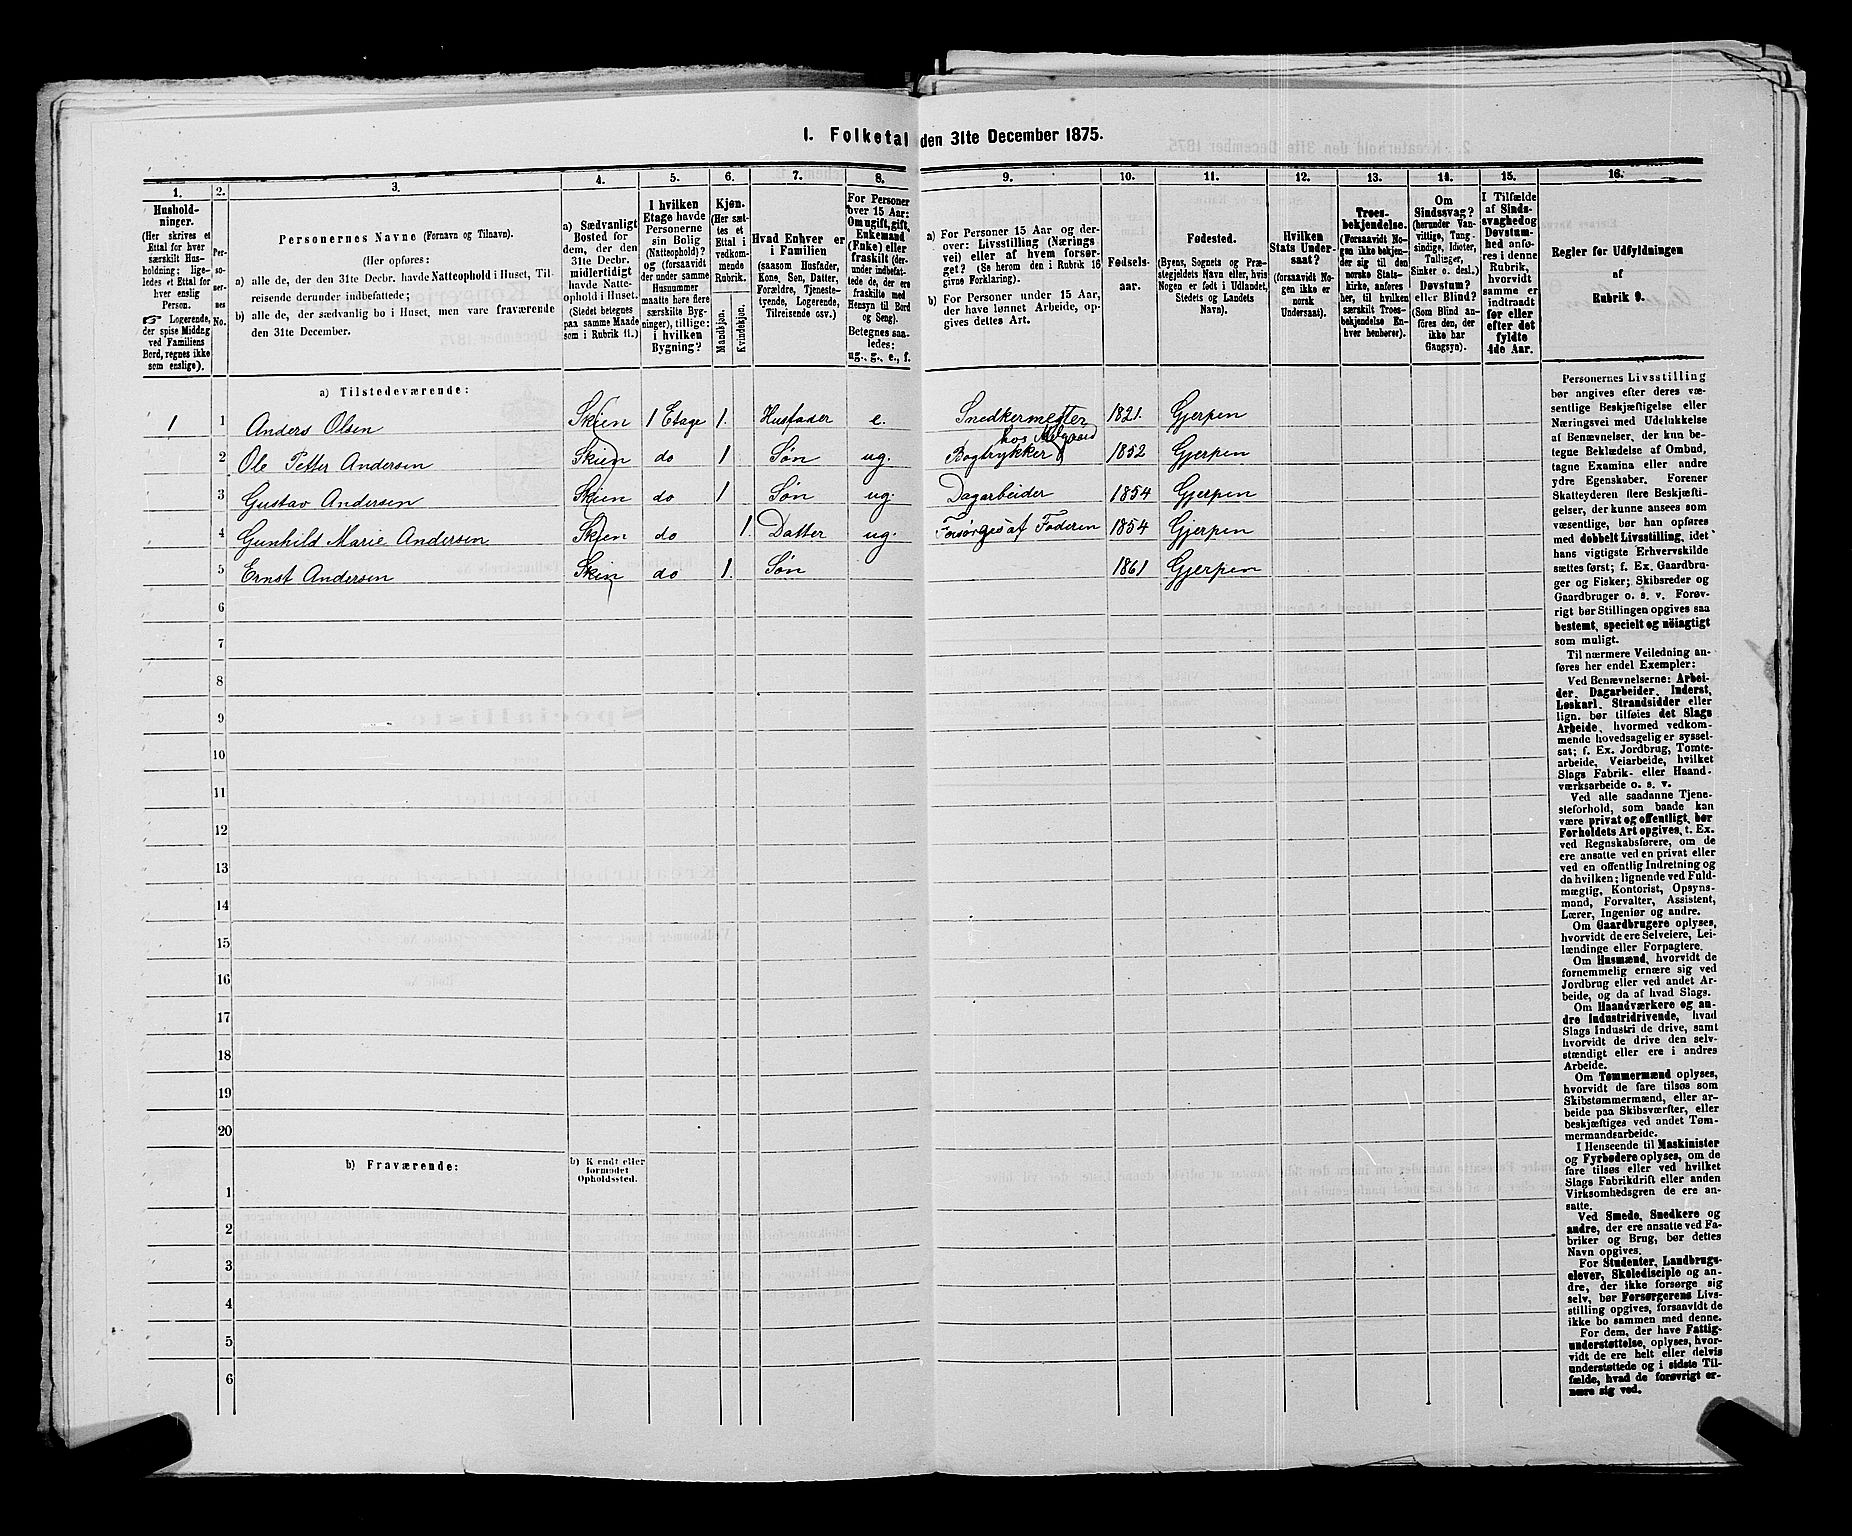 1. Folketal den 31te December 1875.
1. 2. 3. 4. 5. 6. 7. 8. 9. 10. 11. 12. 13. 14. 15. 16.
Hushold-
ninger.
(Her skrives et
Ettal for hver
særskilt Hus-
holdning; lige-
ledes et Ettal for
hver enslig
Person.
☞ Logerende,
der spise Middag
ved Familiens
Bord, regnes ikke
som enslige).
Per-
so-
ner-
nes
No.
Personernes Navne (Fornavn og Tilnavn).
(Her opføres:
a) alle de, der den 31te Decbr. havde Natteophold i Huset, Til-
reisende derunder indbefattede;
b) alle de, der sædvanlig bo i Huset, men vare fraværende
den 31te December.
a) Sædvanligt
Bosted for
dem, der den
31te Decbr.
midlertidigt
havde Natte-
ophold i Huset.
(Stedet betegnes
paa samme Maade
som i Rubrik 11.)
I hvilken
Etage havde
Personerne
sin Bolig
(Natteophold)?
og (forsaavidt
der under samme
Husnummer
maatte høre flere
særskilte Byg-
ninger), tillige:
i hvilken
Bygning?
Kjøn.
(Her sæt-
tes et
Ettal i
vedkom-
mende
Rubrik.
Mandkjøn.
Kvindekjøn.
Hvad Enhver er
i Familien
(saasom Husfader,
Kone, Søn, Datter,
Forældre, Tjeneste-
tyende, Logerende,
Tilreisende osv.)
For Personer
over 15 Aar:
Om ugift, gift,
Enkemand
(Enke) eller
fraskilt (der-
under indbefat-
tede de, der ere
fraskilte med
Hensyn til Bord
og Seng).
Betegnes saa-
ledes:
ug., g., e., f.
a) For Personer 15 Aar og der-
over: Livsstilling (Nærings-
vei) eller af hvem forsør-
get? (Se herom den i Rubrik 16
givne Forklaring).
b) For Personer under 15 Aar,
der have lønnet Arbeide, op-
gives dettes Art.
Fødsels-
aar.
Fødested.
(Byens, Sognets og Præ-
stegjeldets Navn eller, hvis
Nogen er født i Udlandet,
Stedets og Landets
Navn).
Hvilken
Stats Under-
saat?
(forsaavidt No-
gen ikke er
norsk
Undersaat).
Troes-
bekjendelse.
(Forsaavidt No-
gen ikke bekjen-
der sig til den
norske Stats-
kirke, anføres
her, til hvilken
særskilt Troes-
bekjendelse En-
hver henhører).
Om
Sindssvag?
(herunder Van-
vittige, Tung-
sindige, Idioter,
Tullinger,
Sinker o. desl.)
Døvstum?
eller Blind?
(Som Blind an-
føres den, der
ikke har
Gangsyn).
I Tilfælde
af Sinds-
svaghed og
Døvstum-
hed anfø-
res i denne
Rubrik,
hvorvidt
samme er
indtraadt
før eller
efter det
fyldte
4de Aar.
Regler før Udfyldningen
af
Rubrik 9.
a) Tilstedeværende:
1 1 Anders Olsen Skien 1 Etage 1. Husfader e. Snedkermester 1821. Gjerpen
hos Melgaard
2 Ole Petter Andersen Skien do 1 Søn ug. Bogtrykker 1852 Gjerpen
3 Gustav Andersen Skien do 1 Søn ug. Dagarbeider 1854 Gjerpen
4 Gunhild Marie Andersen Skien do 1. Datter ug. Forsørges af Faderen 1854 Gjerpen
5 Ernst Andersen Skien do 1. Søn 1861 Gjerpen
6
7
8
9
10
11
12
13
14
15
16
17
18
19
20
b) Fraværende:
b) Kjendt eller
formodet
Opholdssted.
1
2
3
4
5
6
Personernes Livsstilling
bør angives efter deres væ-
sentlige Beskjæftigelse eller
Næringsvei med Udelukkelse
af Benævnelser, der kun be-
tegne Beklædelse af Ombud,
tagne Examina eller andre
ydre Egenskaber. Forener
Skatteyderen flere Beskjæfti-
gelser, der kunne ansees som
væsentlige, bør han opføres
med dobbelt Livsstilling, idet
hans vigtigste Erhvervskilde
sættes først; f. Ex. Gaardbru-
ger og Fisker; Skibsreder og
Gaardbruger o. s. v. Forøv-
rigt bør Stillingen opgives saa
bestemt, specielt og nøiagtigt
som muligt.
Til nærmere Veiledning an-
føres her endel Exempler:
Ved Benævnelserne: Arbei-
der, Dagarbeider, Inderst,
Løskarl, Strandsidder eller
lign. bør tilføies det Slags
Arbeide, hvormed vedkom-
mende hovedsagelig er syssel-
sat; f. Ex. Jordbrug, Tomte-
arbeide, Veiarbeide, hvilket
Slags Fabrik- eller Haand-
værksarbeide o. s. v.
Ved alle saadanne Tjene-
steforhold, som baade kan
være privat og offentligt, bør
Forholdets Art opgives, t. Ex.
ved Regnskabsførere, om de
ere ansatte ved en privat eller
ved en offentlig Indretning og
da hvilken; lignende ved Fuld-
mægtig, Kontorist, Opsyns-
mand, Forvalter, Assistent,
Lærer, Ingeniør og andre.
Om Gaardbrugere oplyses,
hvorvidt de ere Selveiere, Lei-
lændinge eller Forpagtere.
Om Husmænd, hvorvidt de
fornemmelig ernære sig ved
Jordbrug eller ved andet Ar-
beide, og da af hvad Slags.
Om Haandværkere og an-
dre Industridrivende, hvad
Slags Industri de drive, samt
hvorvidt de drive den selv-
stændigt eller ere i andres
Arbeide.
Om Tømmermænd oplyses,
hvorvidt de fare tilsøs som
Skibstømmermænd, eller ar-
beide paa Skibsværfter, eller
beskjæftiges ved andet Tøm-
mermandsarbeide.
I Henseende til Maskinister
og Fyrbødere oplyses, om de
fare tilsøs eller ved hvilket
Slags Fabrikdrift eller anden
Virksomhedsgren de ere an-
satte.
Ved Smede, Snedkere og
andre, der ere ansatte ved Fa-
briker og Brug, bør dettes
Navn opgives.
For Studenter, Landbrugs-
elever, Skoledisciple og an-
dre, der ikke forsørge sig
selv, bør Forsørgerens Livs-
stilling opgives, forsaavidt de
ikke bo sammen med denne.
For dem, der have Fattig-
understøttelse, oplyses, hvor-
vidt de ere helt eller delvis
understøttede og i sidste Til-
fælde, hvad de forøvrigt er-
nære sig ved.